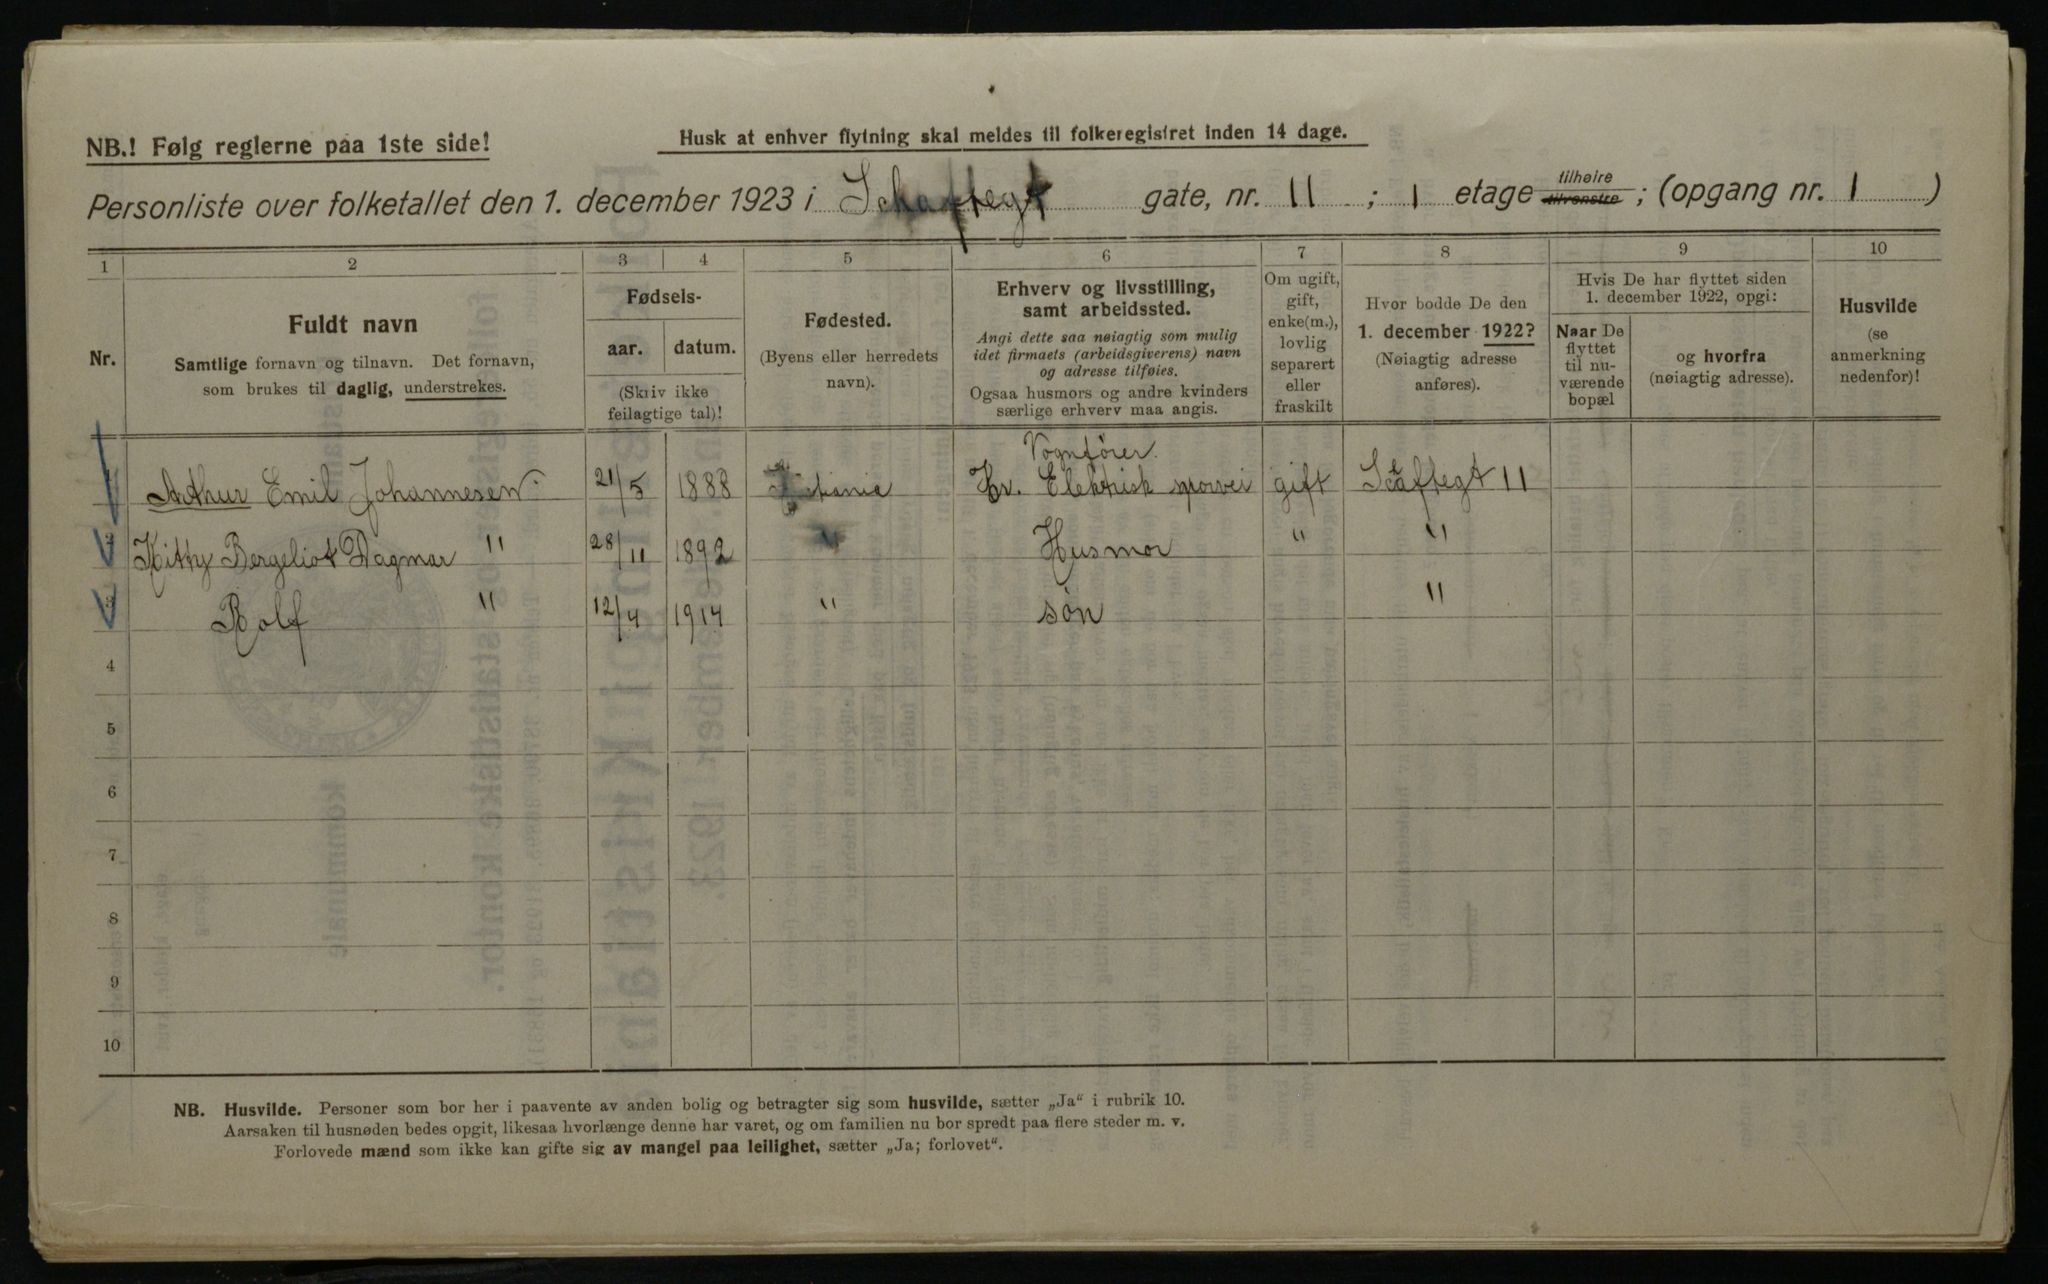 NB.! Følg reglerne paa 1ste side!
Husk at enhver flytning skal meldes til folkeregistret inden 14 dage.
Personliste over folketallet den 1. december 1923 i Schaftegt gate, nr. 11 ; 1 etage tilhøire tilvenstre ; (opgang nr. 1 )
1 2 3 4 5 6 7 8 9 10
Nr.
Fuldt navn
Samtlige fornavn og tilnavn. Det fornavn,
som brukes til daglig, understrekes.
Fødsels-
aar. datum.
(Skriv ikke
feilagtige tal)!
Fødested.
(Byens eller herredets
navn).
Erhverv og livsstilling,
samt arbeidssted.
Angi dette saa nøiagtig som mulig
idet firmaets (arbeidsgiverens) navn
og adresse tilføies.
Ogsaa husmors og andre kvinders
særlige erhverv maa angis.
Om ugift,
gift,
enke(m.),
lovlig
separert
eller
fraskilt
Hvor bodde De den
1. december 1922?
(Nøiagtig adresse
anføres).
Hvis De har flyttet siden
1. december 1922, opgi:
Naar De
flyttet
til nu-
værende
bopæl
og hvorfra
(nøiagtig adresse).
Husvilde
(se
anmerkning
nedenfor)!
Vognfører.
1 Arthur Emil Johannesen. 21/5 1888 Kr. Elektrisk sporvei gift Schaftegt 11
2 Kitty Bergeliot Dagmar " 28/11 1892 " Husmor " "
3 Rolf " 12/4 1914 " søn "
4
5
6
7
8
9
10
NB. Husvilde. Personer som bor her i paavente av anden bolig og betragter sig som husvilde, sætter „Ja“ i rubrik 10.
Aarsaken til husnøden bedes opgit, likesaa hvorlænge denne har varet, og om familien nu bor spredt paa flere steder m. v.
Forlovede mænd som ikke kan gifte sig av mangel paa leilighet, sætter „Ja; forlovet“.